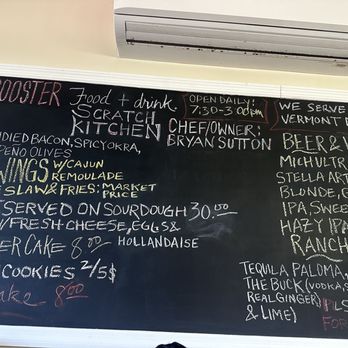 ROOSTER
Food + drink
SCRATCH
KITCHEN
OPEN DAILY:
7:30-3:00pm
CHEF/OWNER:
BRYAN SUTTON
DIED BACON, SPICY OKRA,
PENO OLIVES
WINGS W/CAJUN
REMOULADE
SLAW & FRIES: MARKET
PRICE
SERVED ON SOURDOUGH 30.00
W/FRESH CHEESE, EGGS &
HOLLANDAISE
ER CAKE 8.00
COOKIES 2/5$
ake 8.00
WE SERVE
VERMONT
BEER & 
MICHULTR
STELLA ART
BLONDE,
IPA, SWEE
HAZY IPA
RANCH
TEQUILA PALOMA,
THE BUCK (VODKA,
REAL GINGER)
& LIME)
PLS
FOR